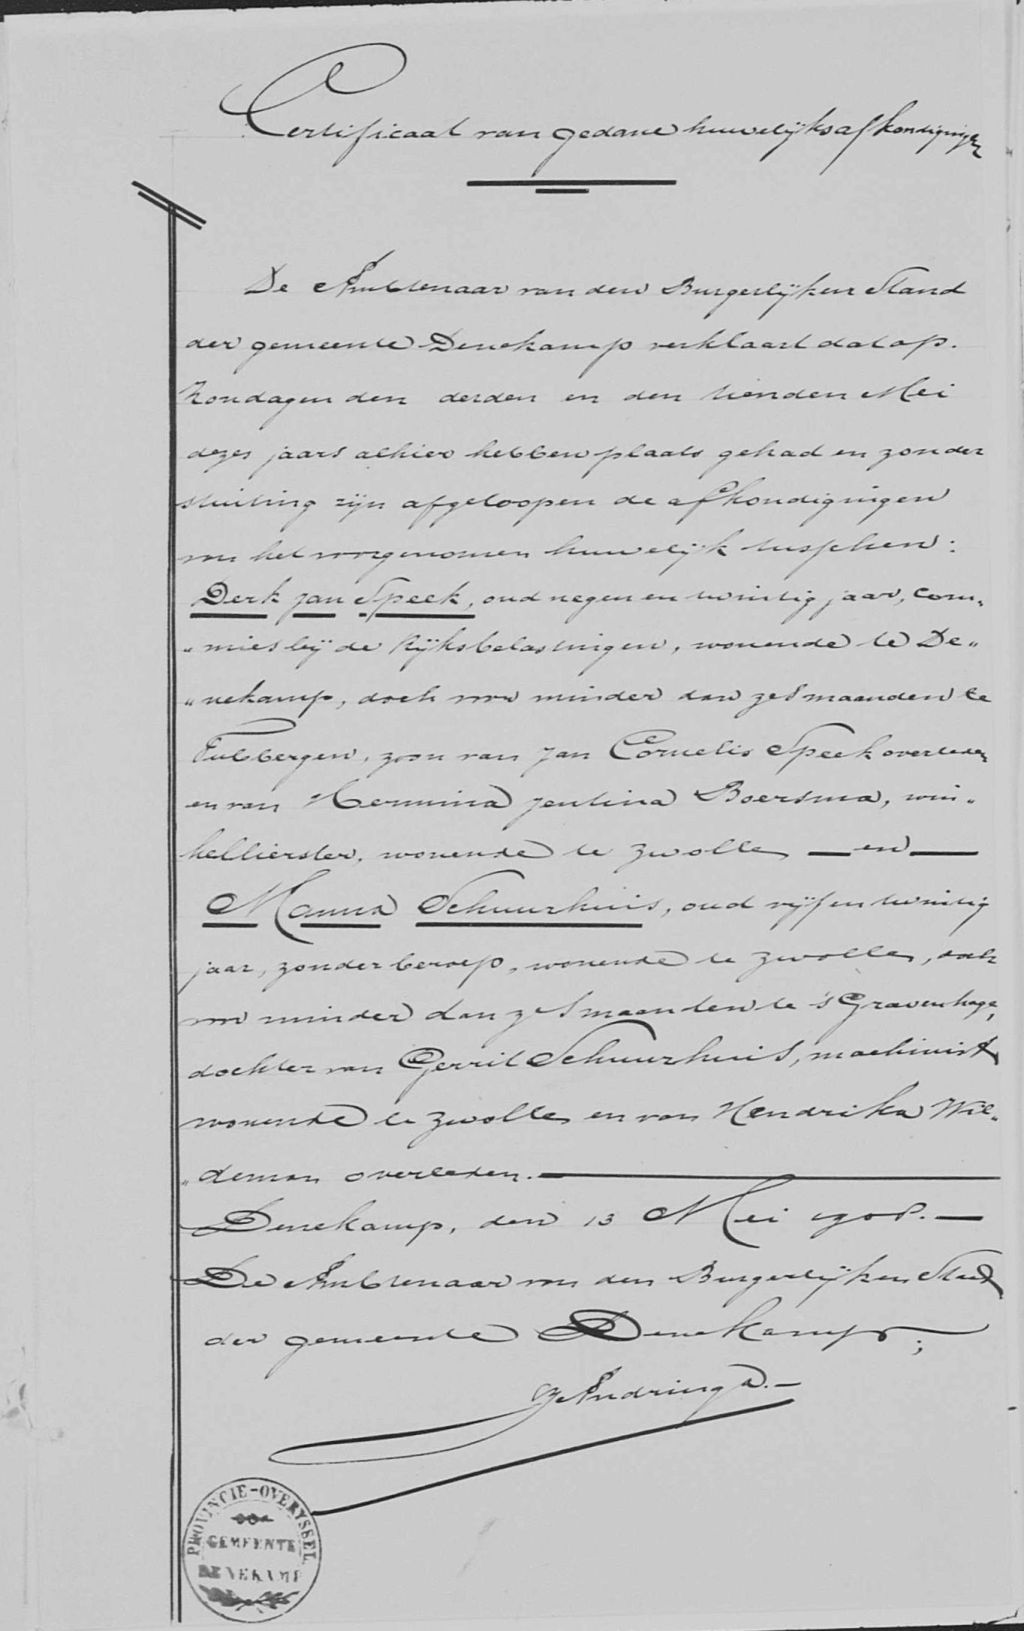 Certificaat van gedane huwelijksafkondigingen
De Ambtenaar van den Burgerlijken Stand
der gemeente Denekamp verklaart dat op
Zondagen den derden en den tienden Mei
dezes jaars alhier hebben plaats gehad en zonder
stuiting zijn afgeloopen de afkondigingen
van het voorgenomen huwelijk tusschen:
Derk Jan Speek, oud negen en twintig jaar, com„
„mies bij de Rijksbelastingen, wonende te De„
„nekamp, doch voor minder dan zes maanden te
Tubbergen, zoon van Jan Cornelis Speek overleden
en van Hermina Jentina Boersma, win„
kellierster, wonende te Zwolle, — en —
Manna Schuurhuis, oud vijf en twintig
jaar, zonder beroep, wonende te Zwolle, doch
voor minder dan zes maanden te 's Gravenhage,
dochter van Gerrit Schuurhuis, machinist
wonende te Zwolle en van Hendrika Wil„
„deman overleden. —
Denekamp, den 13 Mei 1908. —
De Ambtenaar van den Burgerlijken Stand
der gemeente Denekamp;
Andringa. —
PROVINCIE-OVERYSSEL
GEMEENTE
DENEKAMP